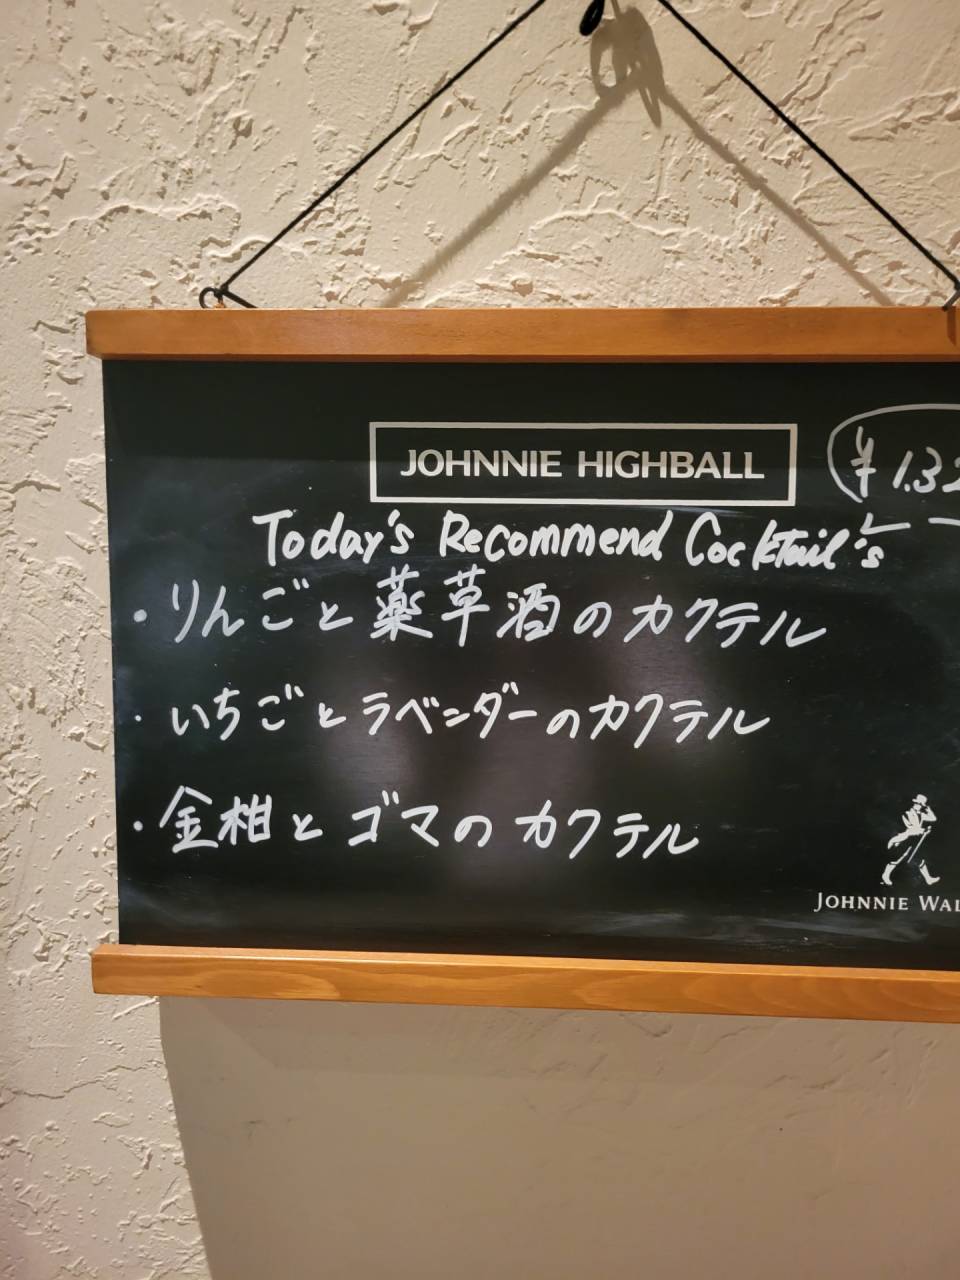 JOHNNIE HIGHBALL
¥1.32
Today's Recommend Cocktail's
・りんごと薬草酒のカクテル
・いちごとラベンダーのカクテル
・金柑とゴマのカクテル
JOHNNIE WAL